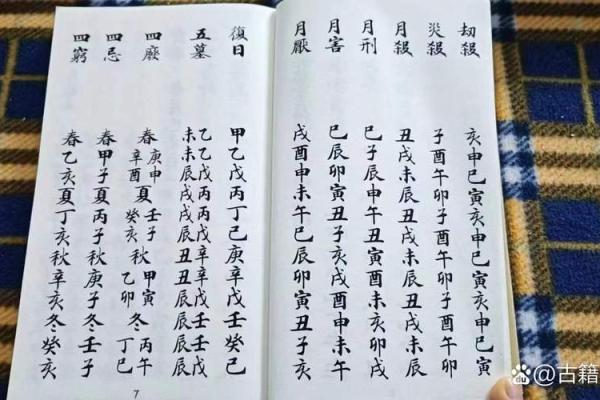 劫殺 亥申巳寅亥申巳寅亥申巳寅
災殺 子酉午卯子酉午卯子酉午卯
月殺 丑戌未辰丑戌未辰丑戌未辰
月刑 巳子辰申午丑寅酉未亥卯戌
月害 巳辰卯寅丑子亥戌酉申未午
月厭 戌酉申未午巳辰卯寅丑子亥
復日 甲乙戊丙丁己庚辛戊壬癸己
五墓 乙乙戊丙丙戊辛辛戊壬壬戊
未未辰戌戌辰丑丑辰辰辰辰
四廢 春庚申辛酉夏壬子癸亥秋甲寅乙卯冬丙午丁巳
四忌 春甲子夏丙子秋庚子冬壬子
四窮 春乙亥夏丁亥秋辛亥冬癸亥
7
du @古籍